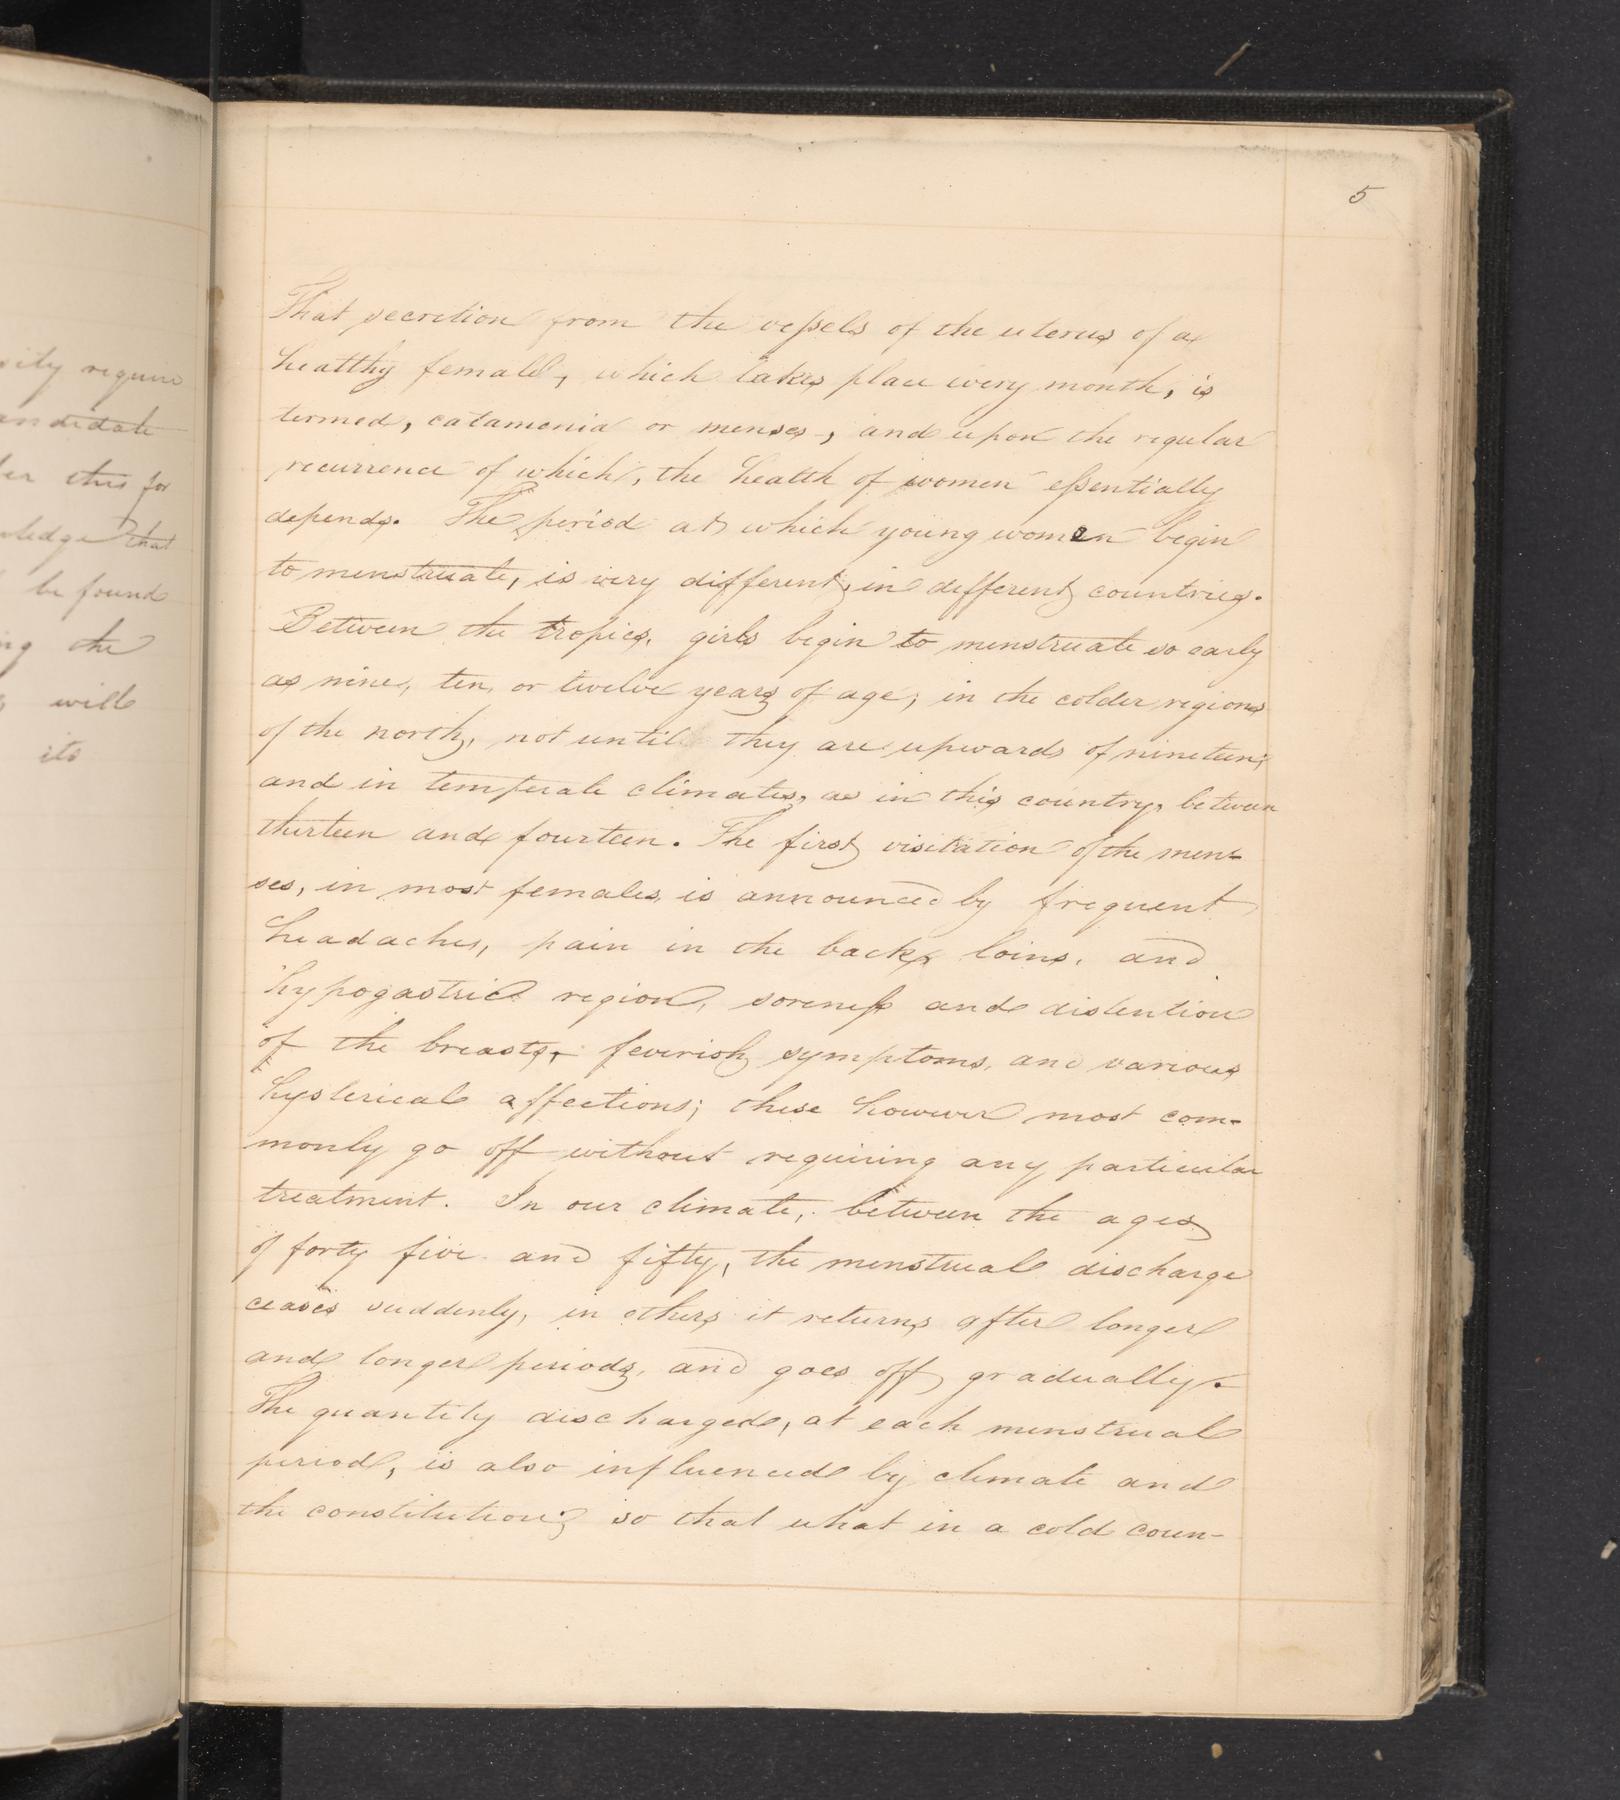 sity require
andidate
er this for
wledge that
be found
ng the
will
its
5
That secretion from the vessels of the uterus of a
healthy female, which takes place every month, is
termed, catamenia or menses, and upon the regular
recurrence of which, the health of women essentially
depends. The period at which young women begin
to menstruate, is very different, in different countries.
Between the tropics, girls begin to menstruate so early
as nine, ten, or twelve years of age; in the colder regions
of the north, not until they are upwards of nineteen;
and in temperate climates, as in this country, between
thirteen and fourteen. The first visitation of the men-
ses, in most females, is announced by frequent
headaches, pain in the back, loins, and
hypogastric region, soreness and distention
of the breasts, feverish symptoms, and various
hysterical affections; these however most com-
monly go off without requiring any particular
treatment. In our climate, between the ages
of forty five and fifty, the menstrual discharge
ceases suddenly, in others it returns after longer
and longer periods, and goes off gradually.
The quantity discharged, at each menstrual
period, is also influenced by climate and
the constitution; so that what in a cold coun-